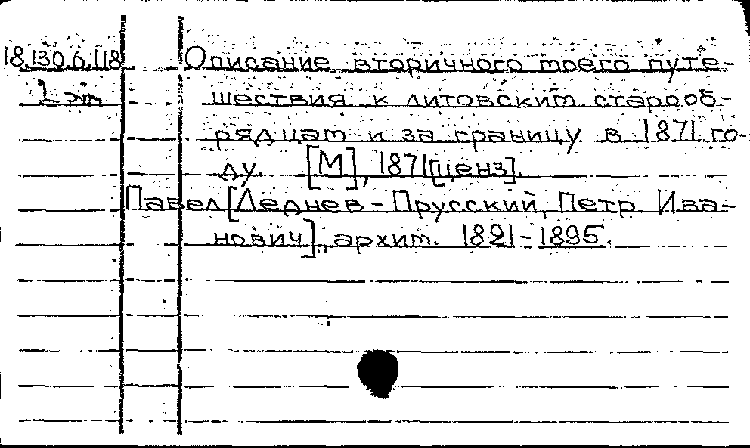 18.130.6.118 Описание вторичного моего путе-
2 эк шествия к литовским старооб-
рядцам и за границу в 1871 го-
ду. [М], 1871 [ценз].
Павел [Леднев-Прусский, Петр Ива-
нович]., архит. 1821-1895.